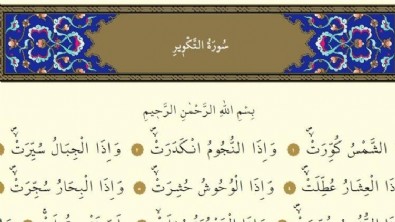 سُورَةُ التَّكْوِيرِ
بِسْمِ اللهِ الرَّحْمٰنِ الرَّحِيمِ
الشَّمْسُ كُوِّرَتْ ۙ وَاِذَا النُّجُومُ انْكَدَرَتْ ۙ وَاِذَا الْجِبَالُ سُيِّرَتْ ۙ
الْعِشَارُ عُطِّلَتْ ۙ وَاِذَا الْوُحُوشُ حُشِرَتْ ۙ وَاِذَا الْبِحَارُ سُجِّرَتْ ۙ